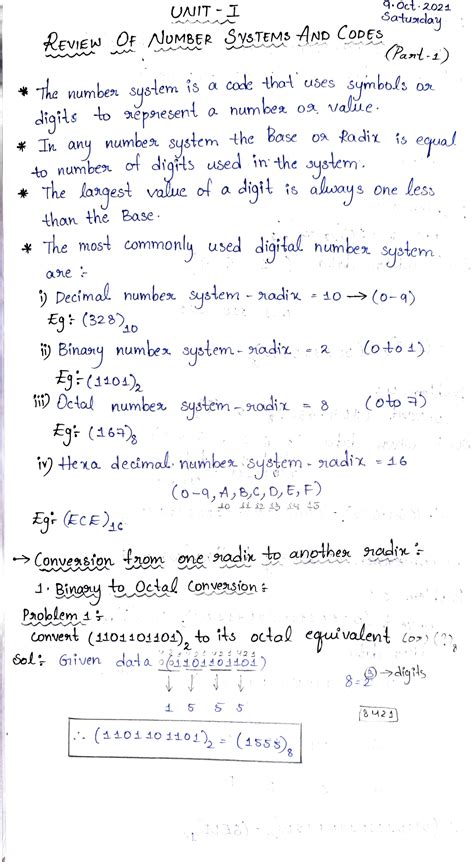 UNIT - I
9.Oct.2021
Saturday
REVIEW OF NUMBER SYSTEMS AND CODES
(Part-1)
* The number system is a code that uses symbols or
digits to represent a number or value.
* In any number system the Base or Radix is equal
to number of digits used in the system.
* The largest value of a digit is always one less
than the Base.
* The most commonly used digital number system
are :-
i) Decimal number system - radix = 10 → (0-9)
Eg:- (328)₁₀
ii) Binary number system - radix = 2 (0 to 1)
Eg:- (1101)₂
iii) Octal number system - radix = 8 (0 to 7)
Eg:- (167)₈
iv) Hexa decimal number system - radix = 16
(0-9, A, B, C, D, E, F)
10 11 12 13 14 15
Eg:- (ECE)₁₆
→ Conversion from one radix to another radix :-
1. Binary to Octal Conversion :-
Problem 1 :-
Convert (1101101101)₂ to its octal equivalent (or) (?)₈
Sol:- Given data (001101101101)
8 = 2³ → digits
↓ ↓ ↓ ↓
1 5 5 5
8421
∴ (1101101101)₂ = (1555)₈